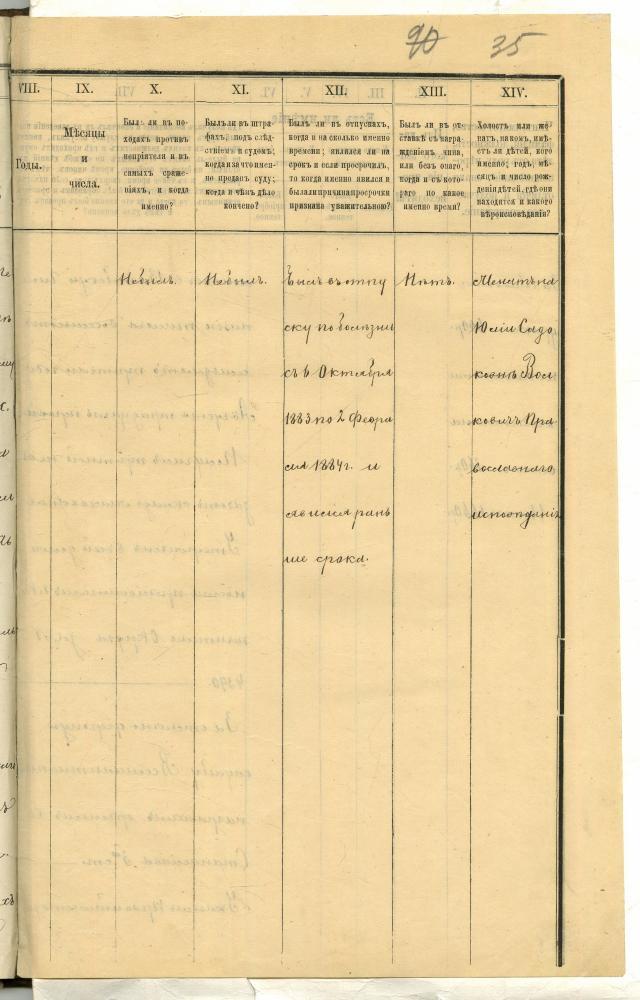 90 35
VIII. IX. X. XI. XII. XIII. XIV.
Годы.
Мѣсяцы
и
числа.
Былъ ли въ по-
ходахъ противъ
непріятеля и въ
самыхъ сраже-
ніяхъ, и когда
именно?
Былъ ли въ штра-
фахъ, подъ слѣд-
ствіемъ и судомъ;
когда и за что имен-
но преданъ суду;
когда и чѣмъ дѣло
кончено?
Былъ ли въ отпускахъ,
когда и на сколько именно
времени; явился ли на
срокъ и если просрочилъ,
то когда именно явился и
была ли причина просрочки
признана уважительною?
Былъ ли въ от-
ставкѣ съ награ-
жденіемъ чина,
или безъ онаго,
когда и съ кото-
раго по какое
именно время?
Холостъ или же-
натъ, на комъ, имѣ-
етъ ли дѣтей, кого
именно; годъ, мѣ-
сяцъ и число рож-
денія дѣтей, гдѣ они
находятся и какого
вѣроисповѣданія?
Небылъ.
Небылъ.
Былъ въ отпу
ску по болѣзни
съ 6 Октября
1883 по 2 Февра
ля 1884 г. и
явился рань
ше срока.
Нѣтъ.
Женатъ на
Юліи Садо
Вол
ковичъ Пра
вославнаго
исповѣданія